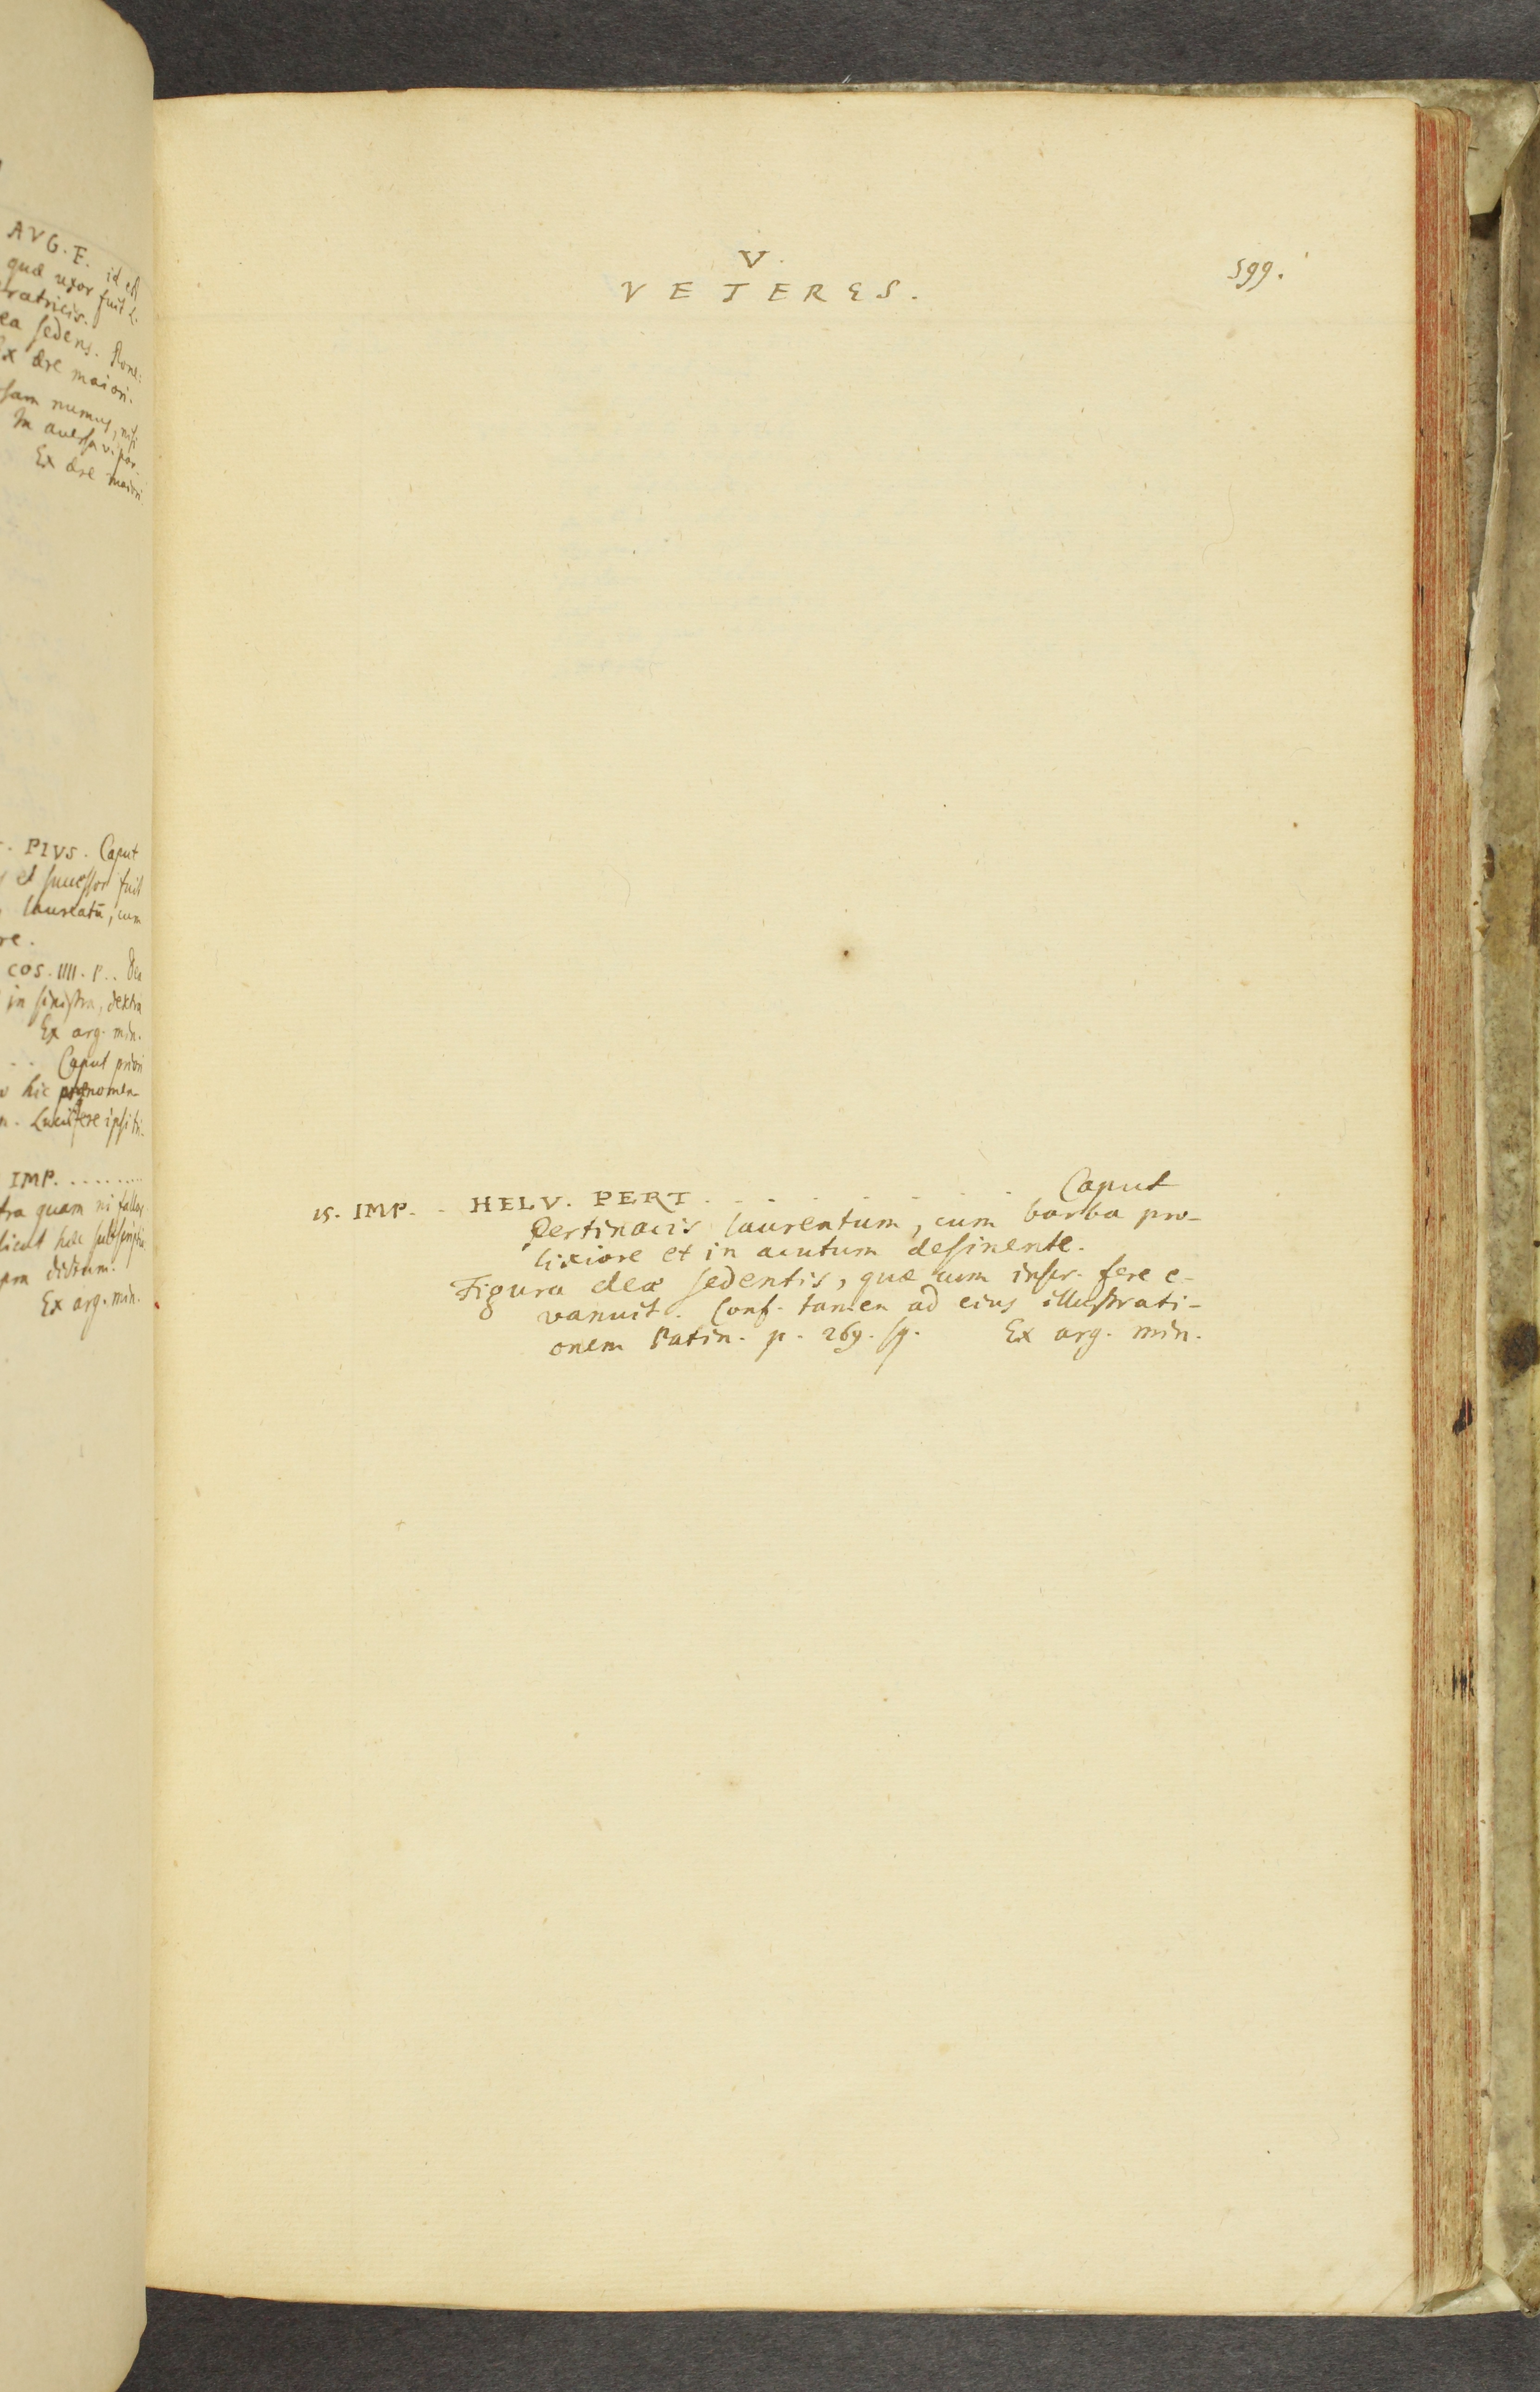 AVG. F. id est
quæ uxor fuit L.
ratricis.
ea sedens. Pone:
Ex ære maiori.
sam numus, nisi
In auersa v. par-
Ex ære maiori
PIVS. Caput
et successor fuit
laureatū, cum
re.
COS. IIII. P.. Dea
in sinistra, dextra
Ex arg. min.
Caput priori
hic prænomen
IMP. ........
tra quam ni fallor
sicut hæc subscriptio
pra dictum.
Ex arg. min.
V.
VETERES.
599.
15. IMP. - HELV. PERT. . . . . . . . Caput
Pertinacis laureatum, cum barba pro-
lixiore et in acutum desinente.
Figura deæ sedentis, quæ cum inscr. fere e-
vanuit. Conf. tamen ad eius illustrati-
onem Patin. p. 269. sq. Ex arg. min.